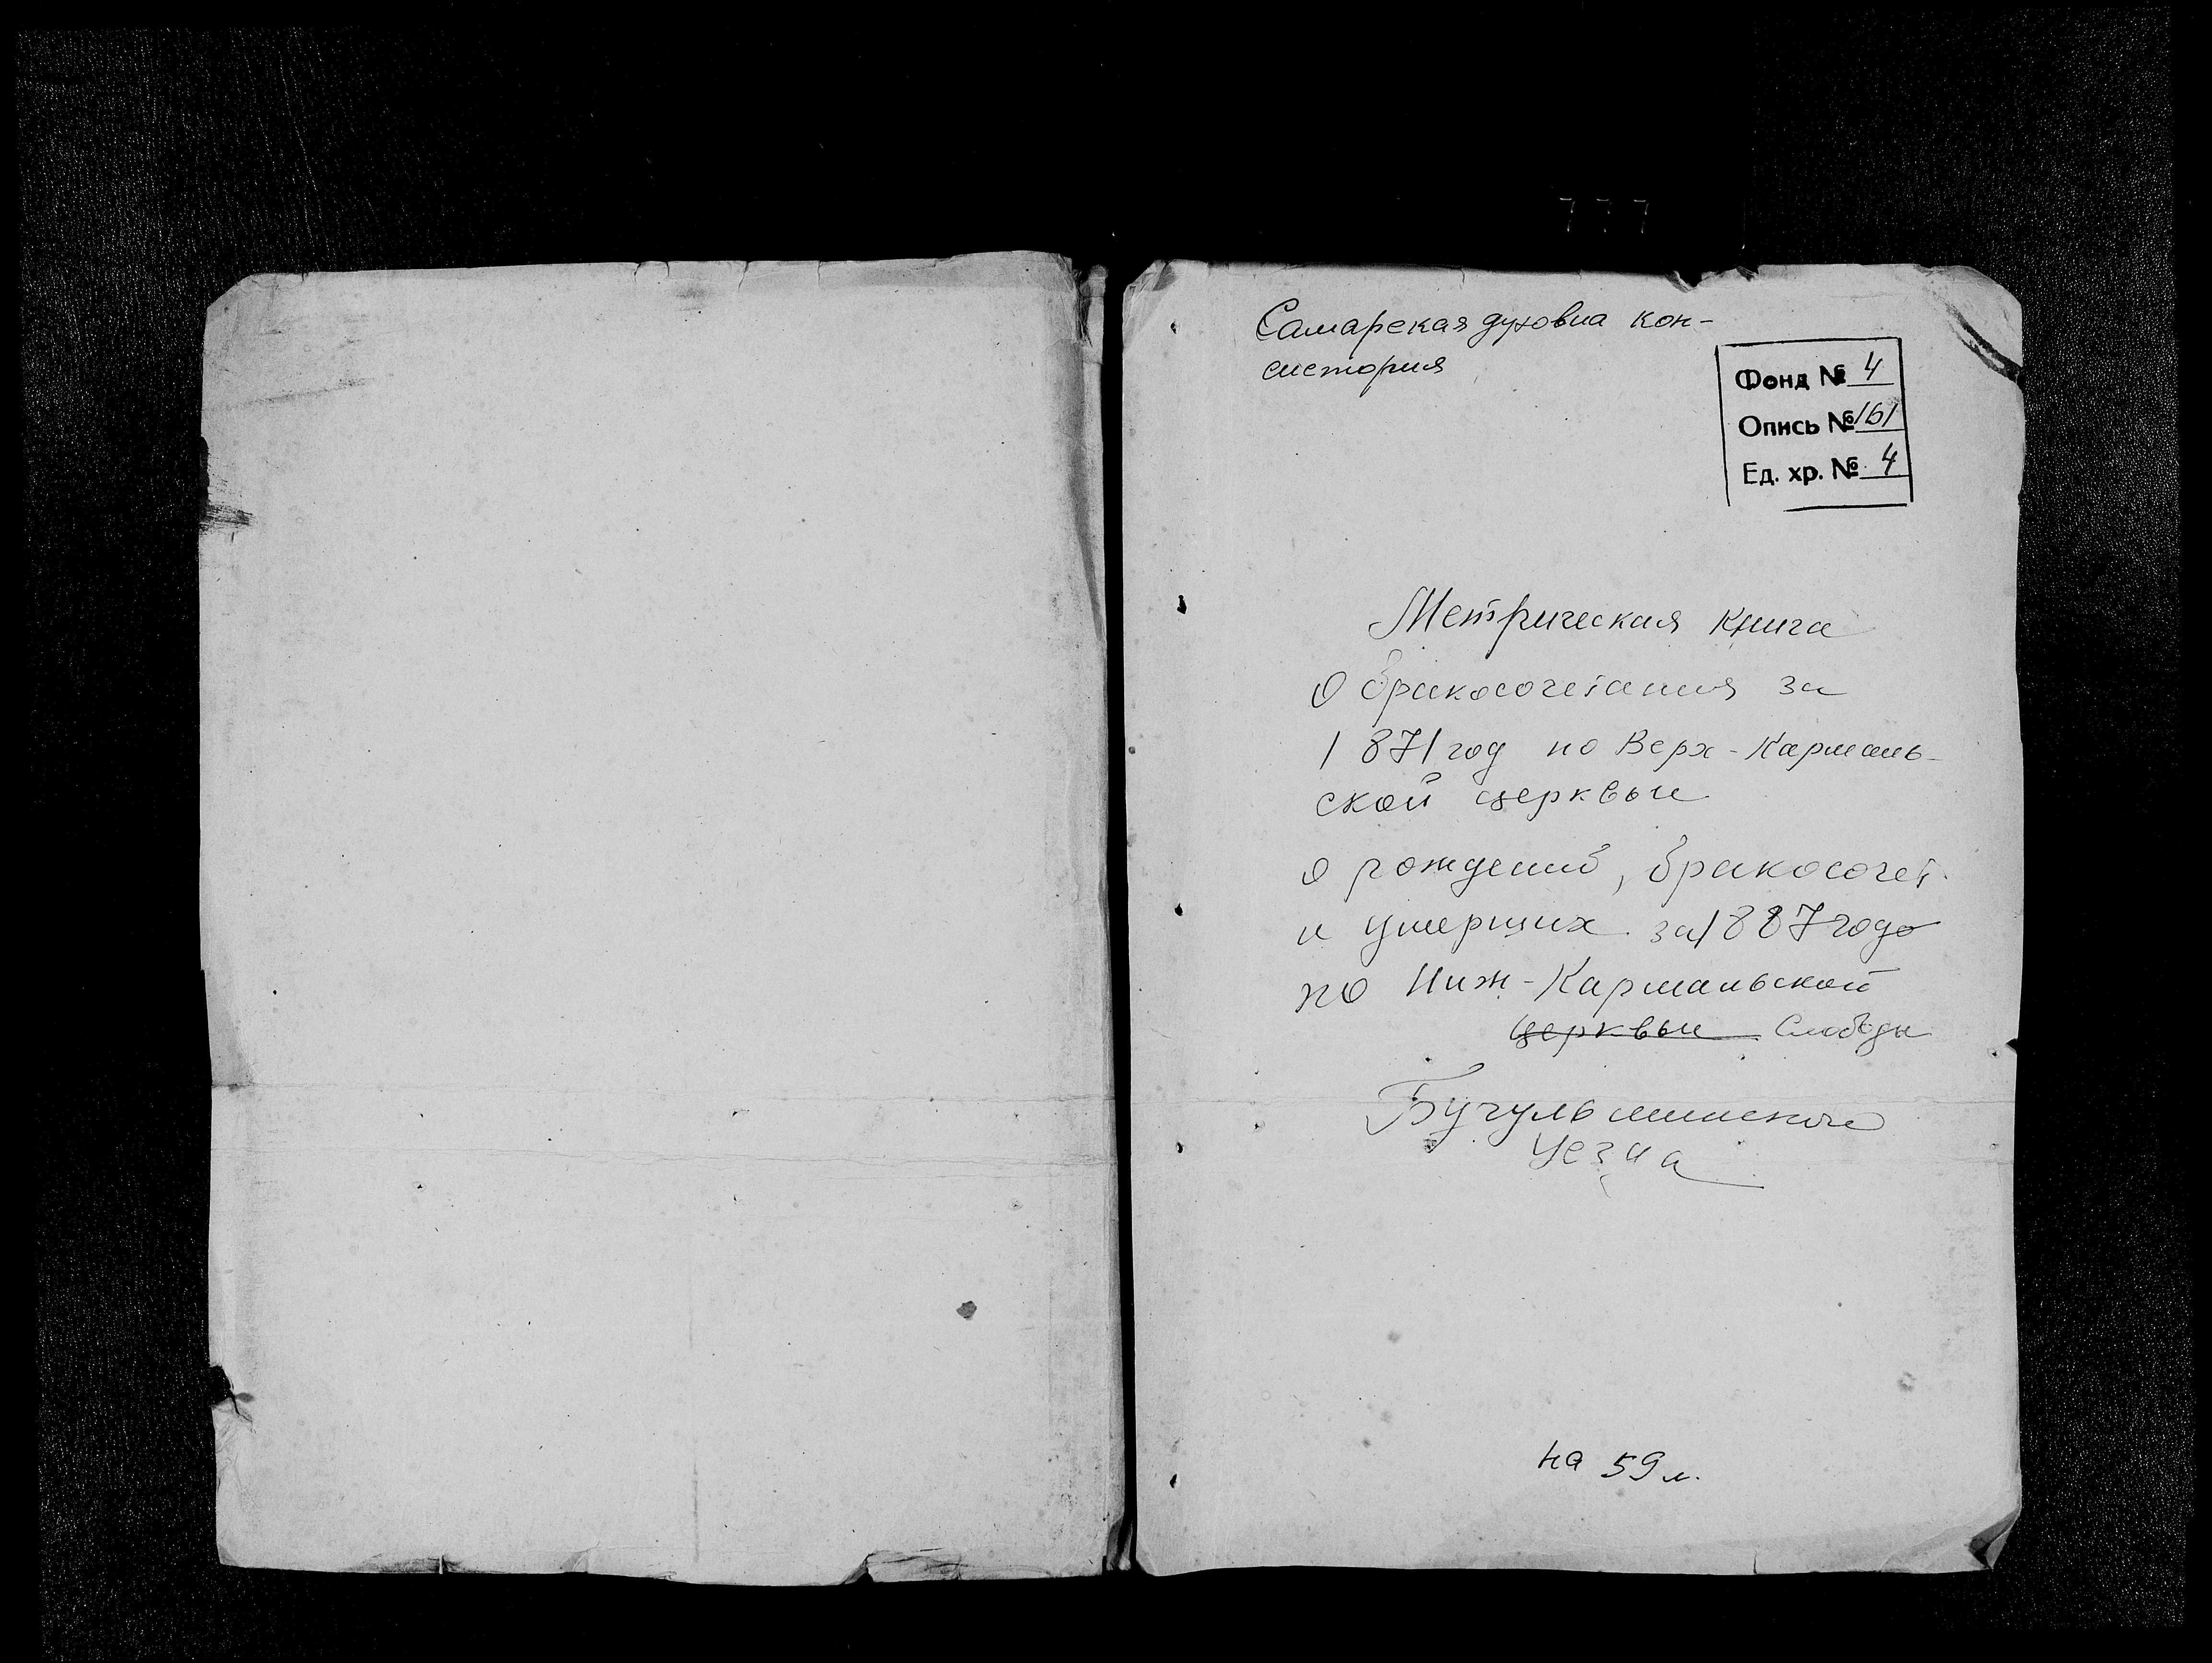 777
Самарская духовна кон-
систория
Фонд № 4
Опись № 161
Ед. хр. № 4
Метрическая книга
о бракосочетания за
1871 год по Верх-Кармаль-
ской церквые
о рождений, бракосочет.
и умерших за 1887 годо
по Ниж-Кармальской
церквые Слободы
Бугульминское
уезда
на 59 л.